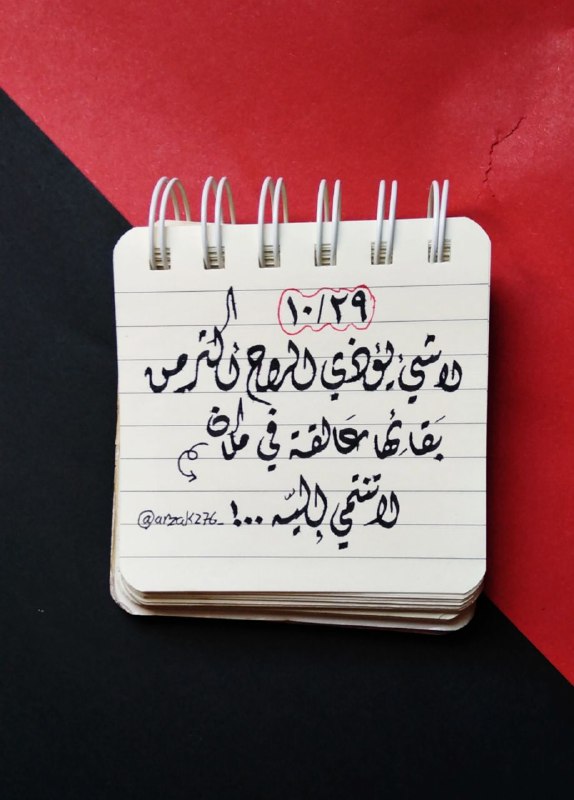 ١٠/٢٩
لا شيء يؤذي الروح أكثر من
بَقائها عَالقة في مكان
لا تنتمي إليّه ...!
@arzak276_